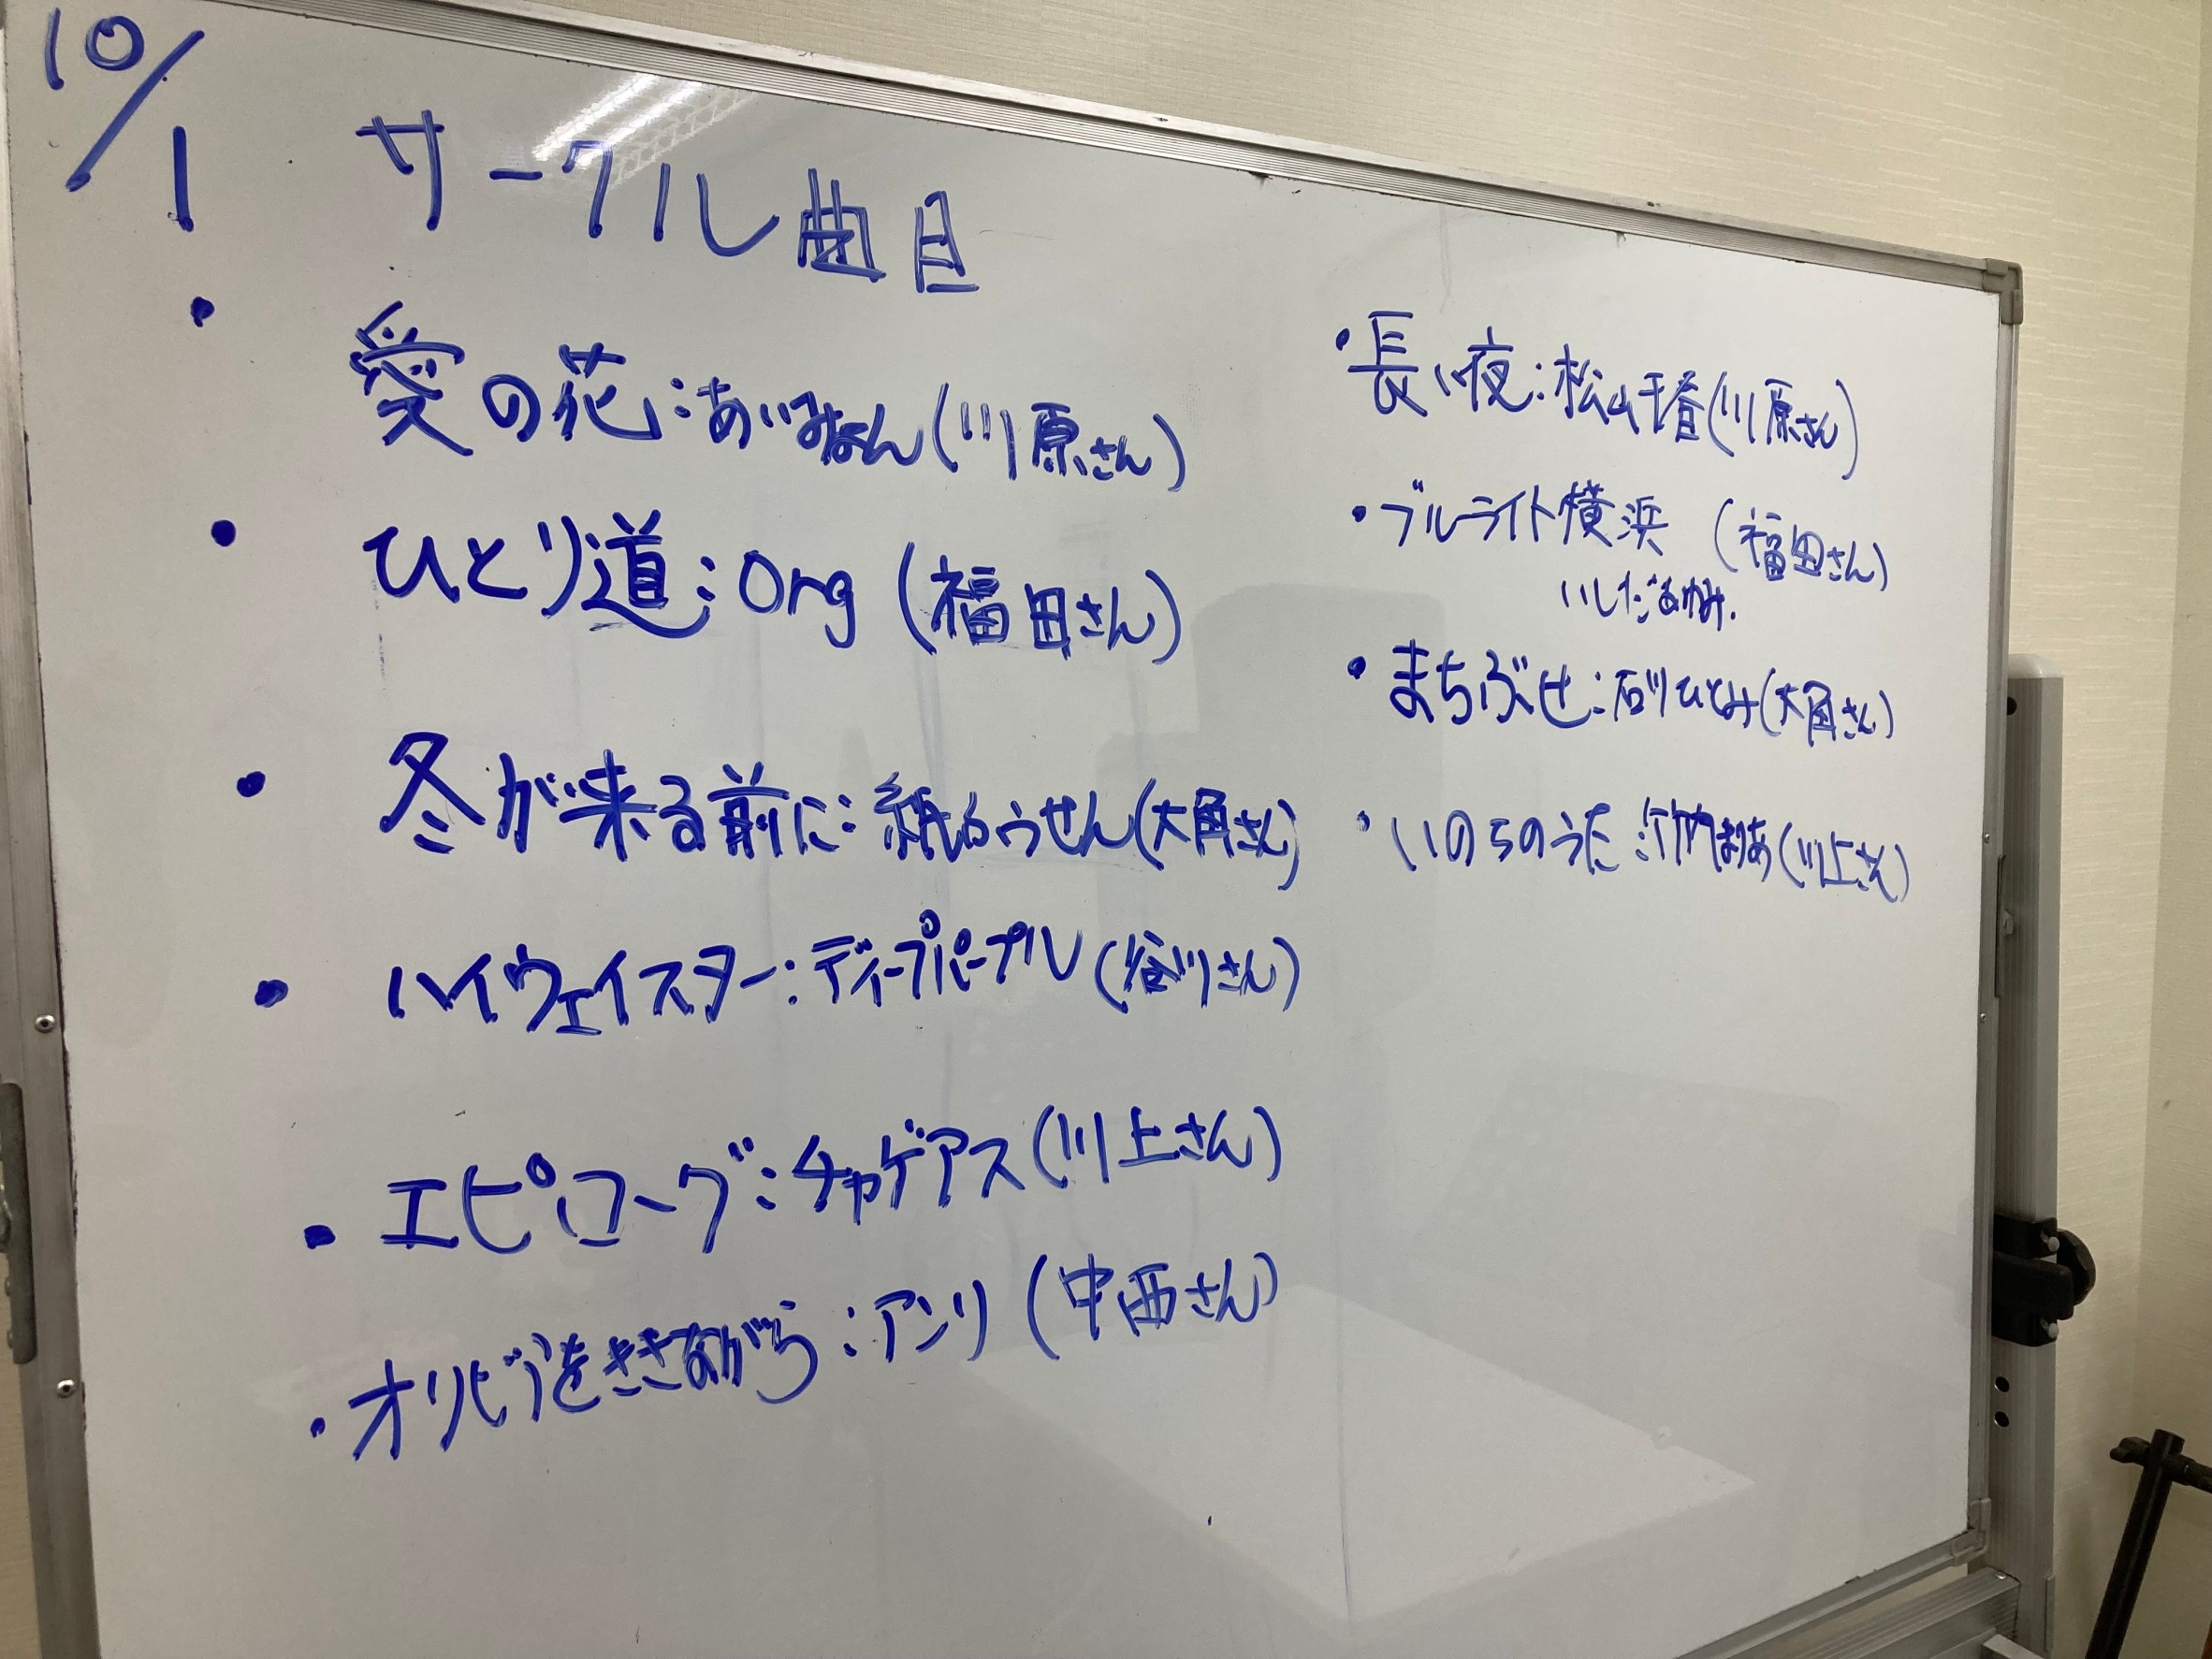 10/1 サークル曲目
・愛の花：あいみょん(川原さん)
・ひとり道：Org (福田さん)
・冬が来る前に：紙ふうせん(大角さん)
・ハイウェイスター：ディープパープル(谷川さん)
・エピローグ：チャゲアス(川上さん)
・オリビアをききながら：アンリ(中西さん)
・長い夜：松山千春(川原さん)
・ブルーライト横浜 (福田さん)
いしだあゆみ.
・まちぶせ：石川ひとみ(大角さん)
・いのちのうた：竹内まりあ(川上さん)